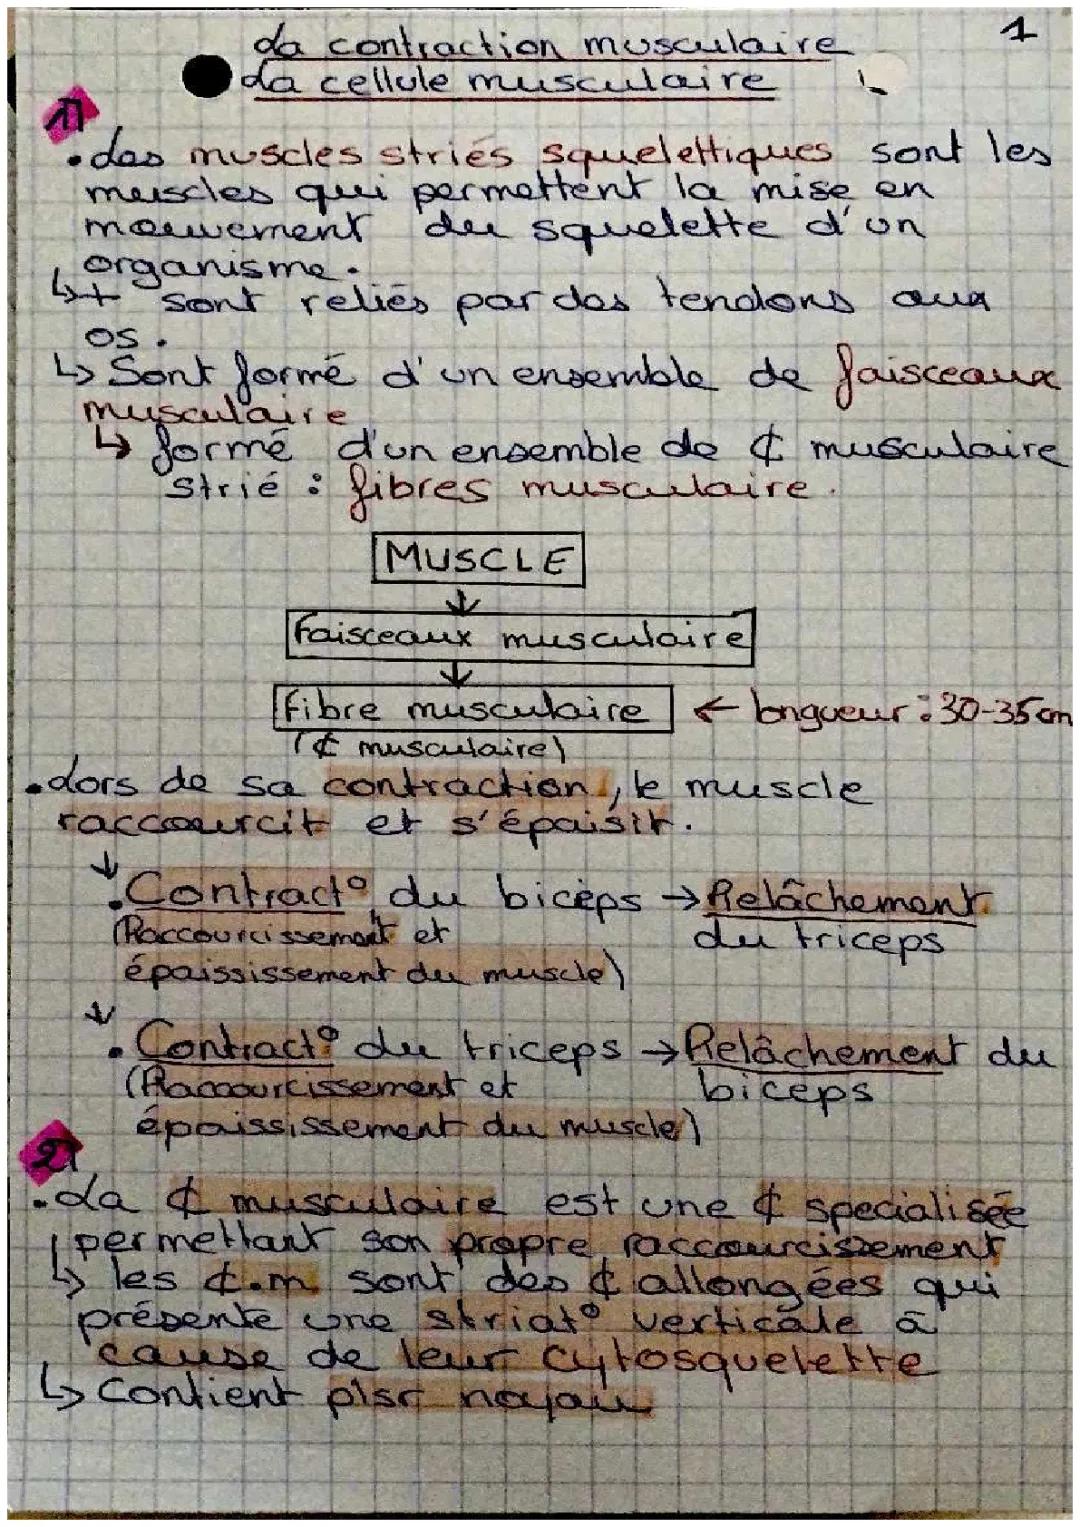 La contraction musculaire
1
La cellule musculaire
1)
• Les muscles striés squelettiques sont les
muscles qui permettent la mise en
mouvement du squelette d'un
organisme.
↳ + sont reliés par des tendons aux
os.
↳ Sont formé d'un ensemble de faisceaux
musculaire
↳ formé d'un ensemble de ₵ musculaire
strié : fibres musculaire.
MUSCLE
↓
Faisceaux musculaire
↓
fibre musculaire ← longueur : 30-35cm
(₵ musculaire)
• Lors de sa contraction, le muscle
raccourcit et s'épaisit.
↓
• Contract° du biceps → Relâchement
(Raccourcissement et du triceps
épaississement du muscle)
↓
• Contract° du triceps → Relâchement du
(Raccourcissement et biceps
épaississement du muscle)
2)
• La ₵ musculaire est une ₵ specialisée
permettant son propre raccourcissement
↳ les ₵.m sont des ₵ allongées qui
présente une striat° verticale à
cause de leur cytosquelette
↳ Contient plsr noyau